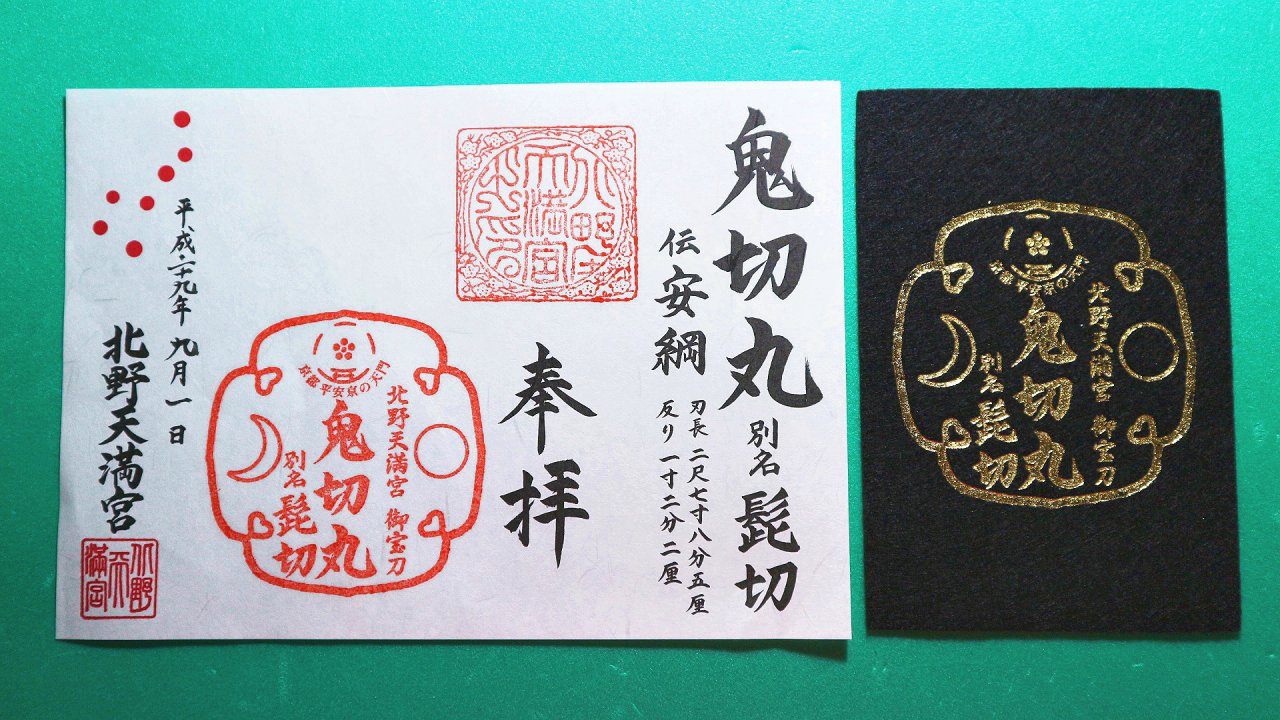 鬼切丸 別名 髭切
伝 安綱
刃長 二尺七寸八分五厘
反り 一寸二分二厘
奉拝
北野天満宮 御宝刀
鬼切丸
別名 髭切
平安京の天門
平成二十九年 九月一日
北野天満宮
北野天満宮
北野天満宮 御宝刀
鬼切丸
別名 髭切
平安京の天門